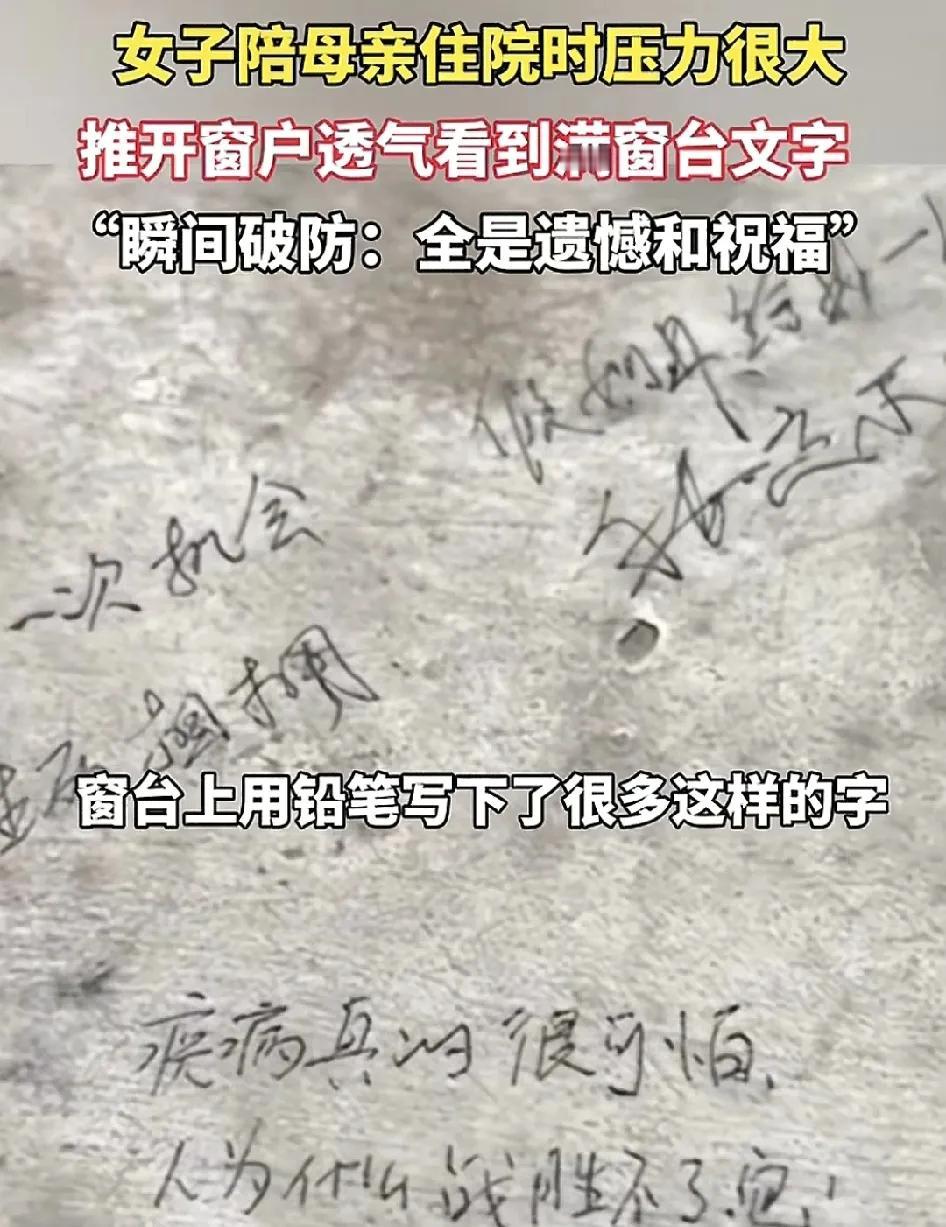 女子陪母亲住院时压力很大
推开窗户透气看到满窗台文字
“瞬间破防：全是遗憾和祝福”
假如再给我一
一次机会
窗台上用铅笔写下了很多这样的字
疾病真的很可怕、
人为什么战胜不了它！